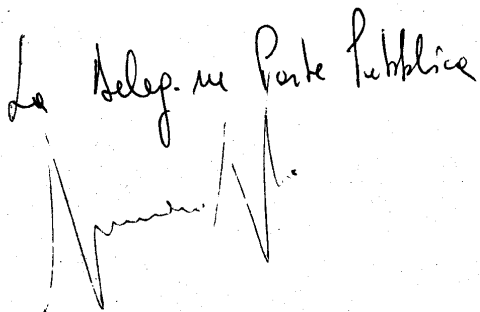 La Deleg.ne Parte Pubblica